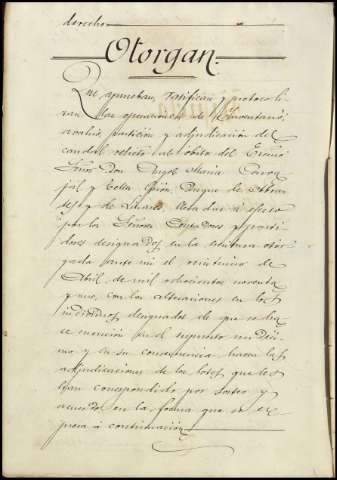 derecho
Otorgan.
Que aprueban, ratifican y protocoli-
zan las operaciones de Inventario,
avalúo, partición y adjudicación del
caudal relicto al óbito del Excmo
Señor Don Angel María Carva-
jal y Tellez Girón, Duque de Abran-
tes y de Linares, llevadas á efecto
por los Señores Contadores y partí-
dores designados en la escritura otor-
gada ante mí el veintinueve de
Abril de mil ochocientos noventa
y uno, con las alteraciones en los
individuos designados de que se ha-
ce mención en el supuesto undéci-
mo y en su consecuencia hacen las
adjudicaciones de los lotes que les
han correspondido por sorteo y
acuerdo en la forma que se ex-
presa á continuación